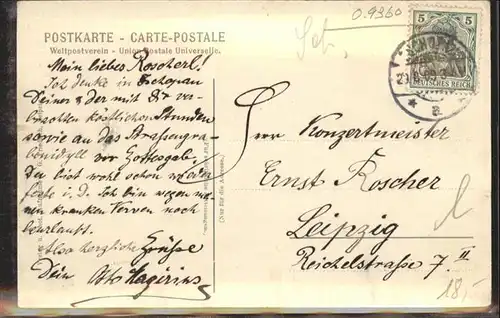 POSTKARTE - CARTE-POSTALE
Weltpostverein - Union Postale Universelle.
Mein liebes Roscherl!
Ich denke in Zschopau
Deiner & der mit Dir ver-
brachten köstlichen Stunden
sowie an das Strassengra-
benidyll vor Gottesgab.
Du bist wohl schon
feste i. D. Ich bin wegen mei-
nen kranken Nerven noch
beurlaubt.
Also herzliche Grüsse
Dein Otto
5 5
DEUTSCHES REICH
0.9360
Herrn Konzertmeister
Ernst Roscher
Leipzig
Reichelstraße 7 II
18,-